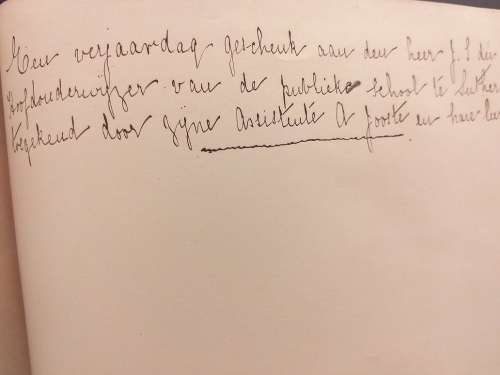 Een verjaardag geschenk aan den heer J. S du
Hoofdonderwijzer van de publieke school te Suther
toegekend door zijne Assistente A Jooste en hare leer